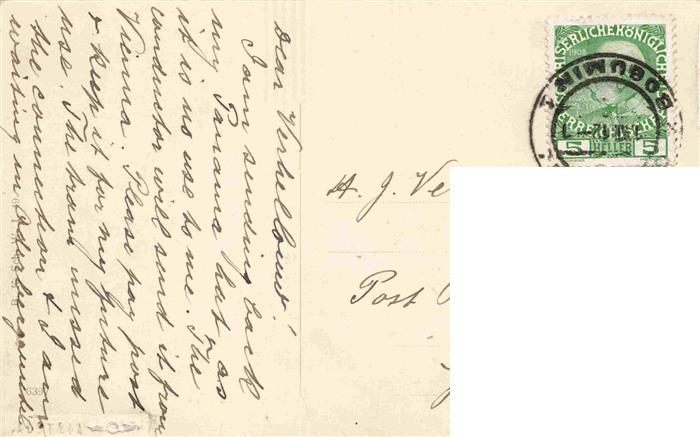 Dear Verbelloud!
I am sending back
my Panama hat as
it is no use to me. The
conductor will send it from
Vienna. Please pay post
& keep it for my future
use. The tram missed
the connection & I am
waiting in Oderberg until
A. J. Ve
Post
SERLICHE KÖNIGLICH
1908
BOGUMIN 1
ERRE CHE
5 HELLER 5
639